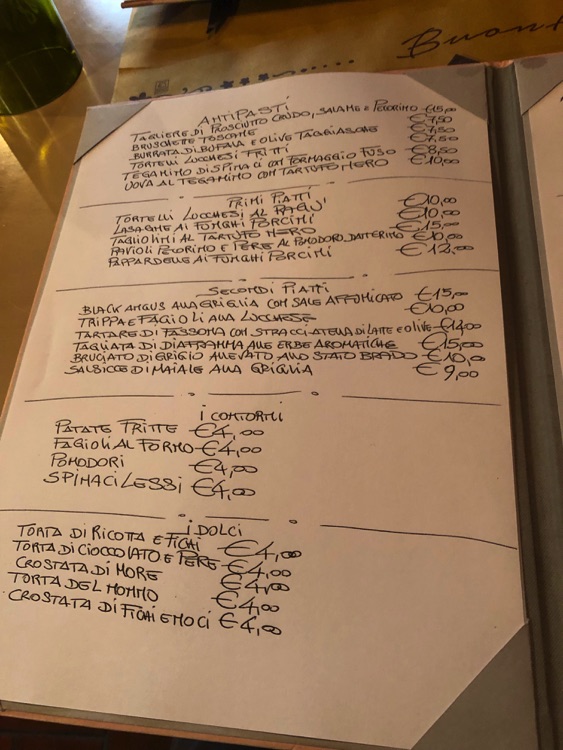 Buon
ANTIPASTI
TAGLIERE DI PROSCIUTTO CRUDO, SALAME E PECORINO €15,00
BRUSCHETTE TOSCANE €7,50
BURRATA DI BUFALA E OLIVE TAGGIASCHE €7,50
TORTELLI LUCCHESI FRITTI €7,50
TEGAMINO DI SPINACI CON FORMAGGIO FUSO €8,50
UOVA AL TEGAMINO CON TARTUFO NERO €10,00
PRIMI PIATTI
TORTELLI LUCCHESI AL RAGU' €10,00
LASAGNE AI FUNGHI PORCINI €10,00
TAGLIOLINI AL TARTUFO NERO €15,00
RAVIOLI PECORINO E PERE AL POMODORO DATTERINO €10,00
PAPPARDELLE AI FUNGHI PORCINI €12,00
SECONDI PIATTI
BLACK ANGUS ALLA GRIGLIA CON SALE AFFUMICATO €15,00
TRIPPA E FAGIOLI ALLA LUCCHESE €10,00
TARTARE DI FASSONA CON STRACCIATELLA DI LATTE E OLIVE €14,00
TAGLIATA DI DIAFRAMMA ALLE ERBE AROMATICHE €15,00
BRUCIATO DI GRIGIO ALLEVATO ALLO STATO BRADO €10,00
SALSICCE DI MAIALE ALLA GRIGLIA €9,00
I CONTORNI
PATATE FRITTE €4,00
FAGIOLI AL FORNO €4,00
POMODORI €4,00
SPINACI LESSI €4,00
I DOLCI
TORTA DI RICOTTA E FICHI €4,00
TORTA DI CIOCCOLATO E PERE €4,00
CROSTATA DI MORE €4,00
TORTA DEL NONNO €4,00
CROSTATA DI FICHI E NOCI €4,00